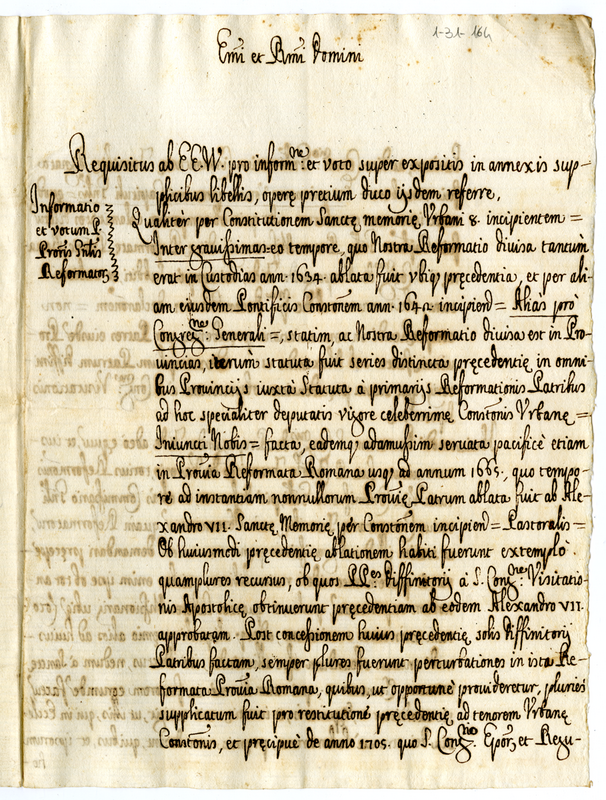 1-31-164
Em̃i et Rm̃i Domini
Requisitus ab EE.VV. pro inform.ne et voto super expositis in annexis sup-
plicibus libellis, operę pretium duco ijsdem referre,
Informatio
et votum P.
Proris Gñlis
Reformator
Qualiter per Constitutionem Sanctę memorię Urbani 8. incipientem =
Inter gravissimas eo tempore, quo Nostra Reformatio divisa tantum
erat in Custodias ann. 1634. ablata fuit ubiq; pręcedentia, et per ali-
am eiusdem Pontificis Constõnem ann. 1642 incipiend = Alias pro
Congreg.ne Generali =, statim, ac Nostra Reformatio divisa est in Pro-
vincias, iterum statuta fuit series distincta pręcedentię in omni-
bus Provincijs iuxta Statuta à primarijs Reformationis Patribus
ad hoc specialiter deputatis vigore celeberrimę Constõnis Urbanę =
Iniuncti Nobis = facta, eademq; adamussim servata pacificè etiam
in Provĩa Reformata Romana usq; ad annum 1665. quo tempo-
re ad instantiam nonnullorum Provĩę Patrum ablata fuit ab Ale-
xandro VII. Sanctę Memorię per Constõnem incipiend = Pastoralis =
Ob huiusmodi pręcedentię ablationem habiti fuerunt extemplò
quamplures recursus, ob quos PP.es Diffinitorij à S. Cong.ne Visitatio-
nis Apostolicę obtinuerunt pręcedentiam ab eodem Alexandro VII.
approbatam. Post concessionem huius pręcedentię, solis Diffinitorij
Patribus factam, semper plures fuerunt perturbationes in ista Re-
formata Provĩa Romana, quibus, ut opportunè provideretur, pluries
supplicatum fuit pro restitutione pręcedentię ad tenorem Urbanę
Constõnis, et pręcipuè de anno 1705. quo S. Cong.o Epor, et Regu-